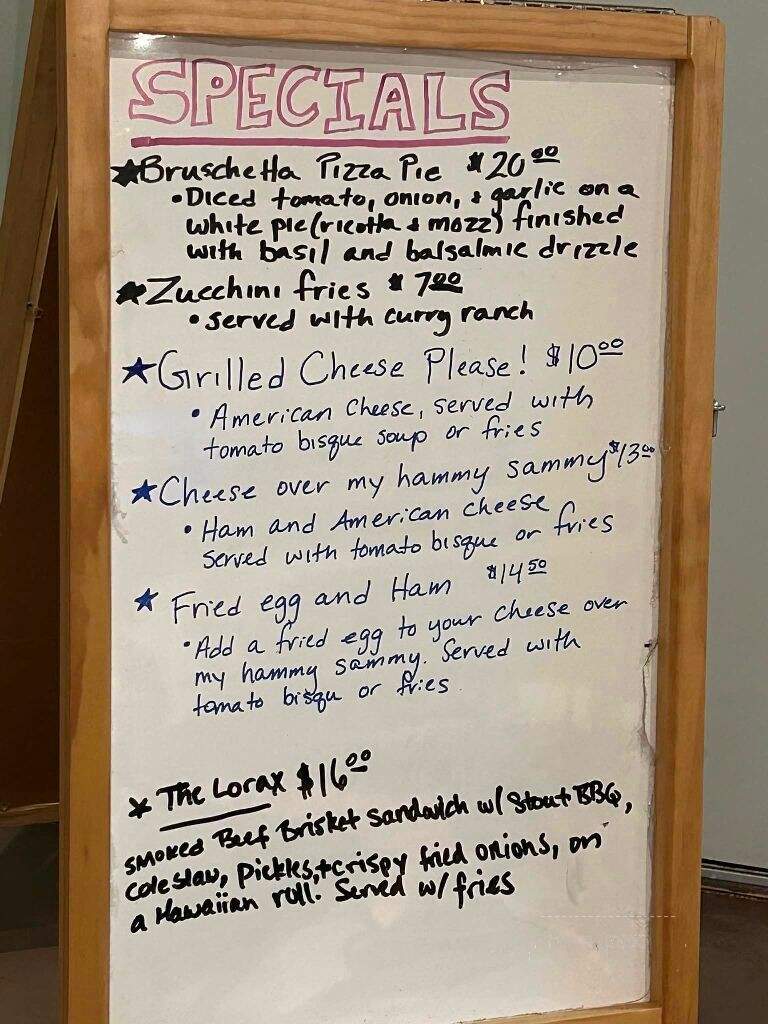 SPECIALS
★Bruschetta Pizza Pie $20.00
•Diced tomato, onion, + garlic on a
white pie (ricotta + mozz) finished
with basil and balsalmic drizzle
★Zucchini fries $7.00
•served with curry ranch
★Grilled Cheese Please! $10.00
• American cheese, served with
tomato bisque soup or fries
★Cheese over my hammy sammy $13.00
• Ham and American cheese
served with tomato bisque or fries
★ Fried egg and Ham $14.50
•Add a fried egg to your cheese over
my hammy sammy. Served with
tomato bisqu or fries.
* The Lorax $16.00
smoked Beef Brisket sandwich w/ stout BBQ,
coleslaw, pickles, + crispy fried onions, on
a Hawaiian roll. Served w/ fries